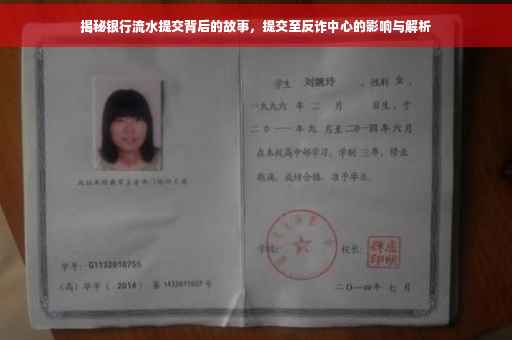 揭秘银行流水提交背后的故事，提交至反诈中心的影响与解析
学生 刘婉玲 ，性别 女 ，
一九九六 年 二 月 日生，于
二〇一一年 九 月至二〇一四年 六 月
在本校高中部学习，学制 三年，修业
期满，成绩合格，准予毕业。
学校： 校长：
学号： G1132010755
（高）毕字（ 2014 ）第 1432011027 号
二〇一四年 七 月